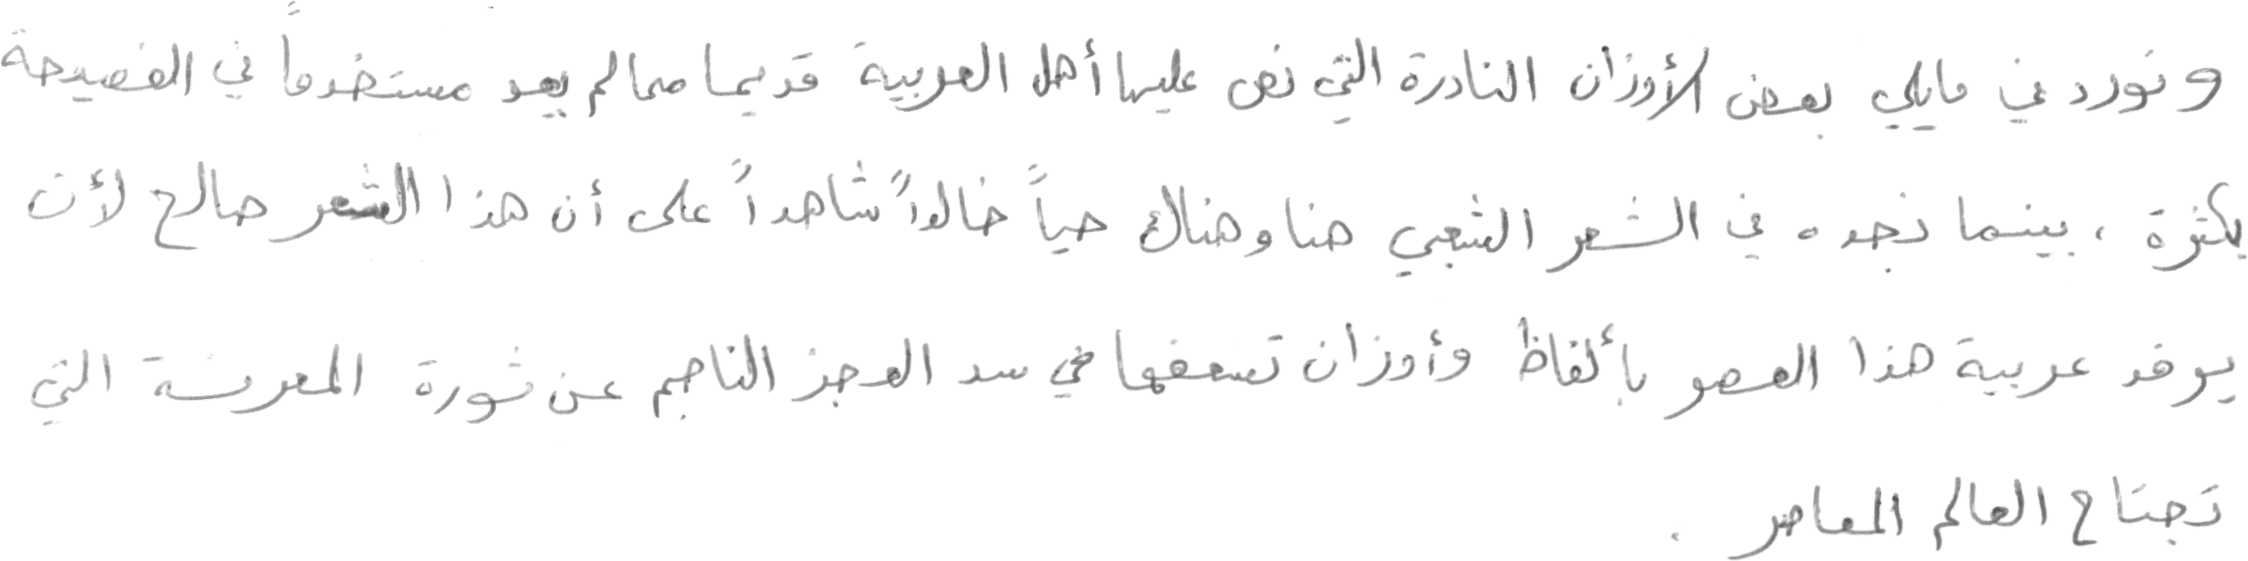 ونورد في مايلي بعض الأوزان النادرة التي نص عليها أهل العربية قديما مما لم يعد مستخدماً في الفصيحة
بكثرة ، بينما نجده في الشعر الشعبي هنا وهناك حياً خالداً شاهداً على أن هذا الشعر صالح لأن
يرفد عربية هذا العصر بألفاظ وأوزان تسعفها في سد العجز الناجم عن ثورة المعرفة التي
تجتاح العالم المعاصر .